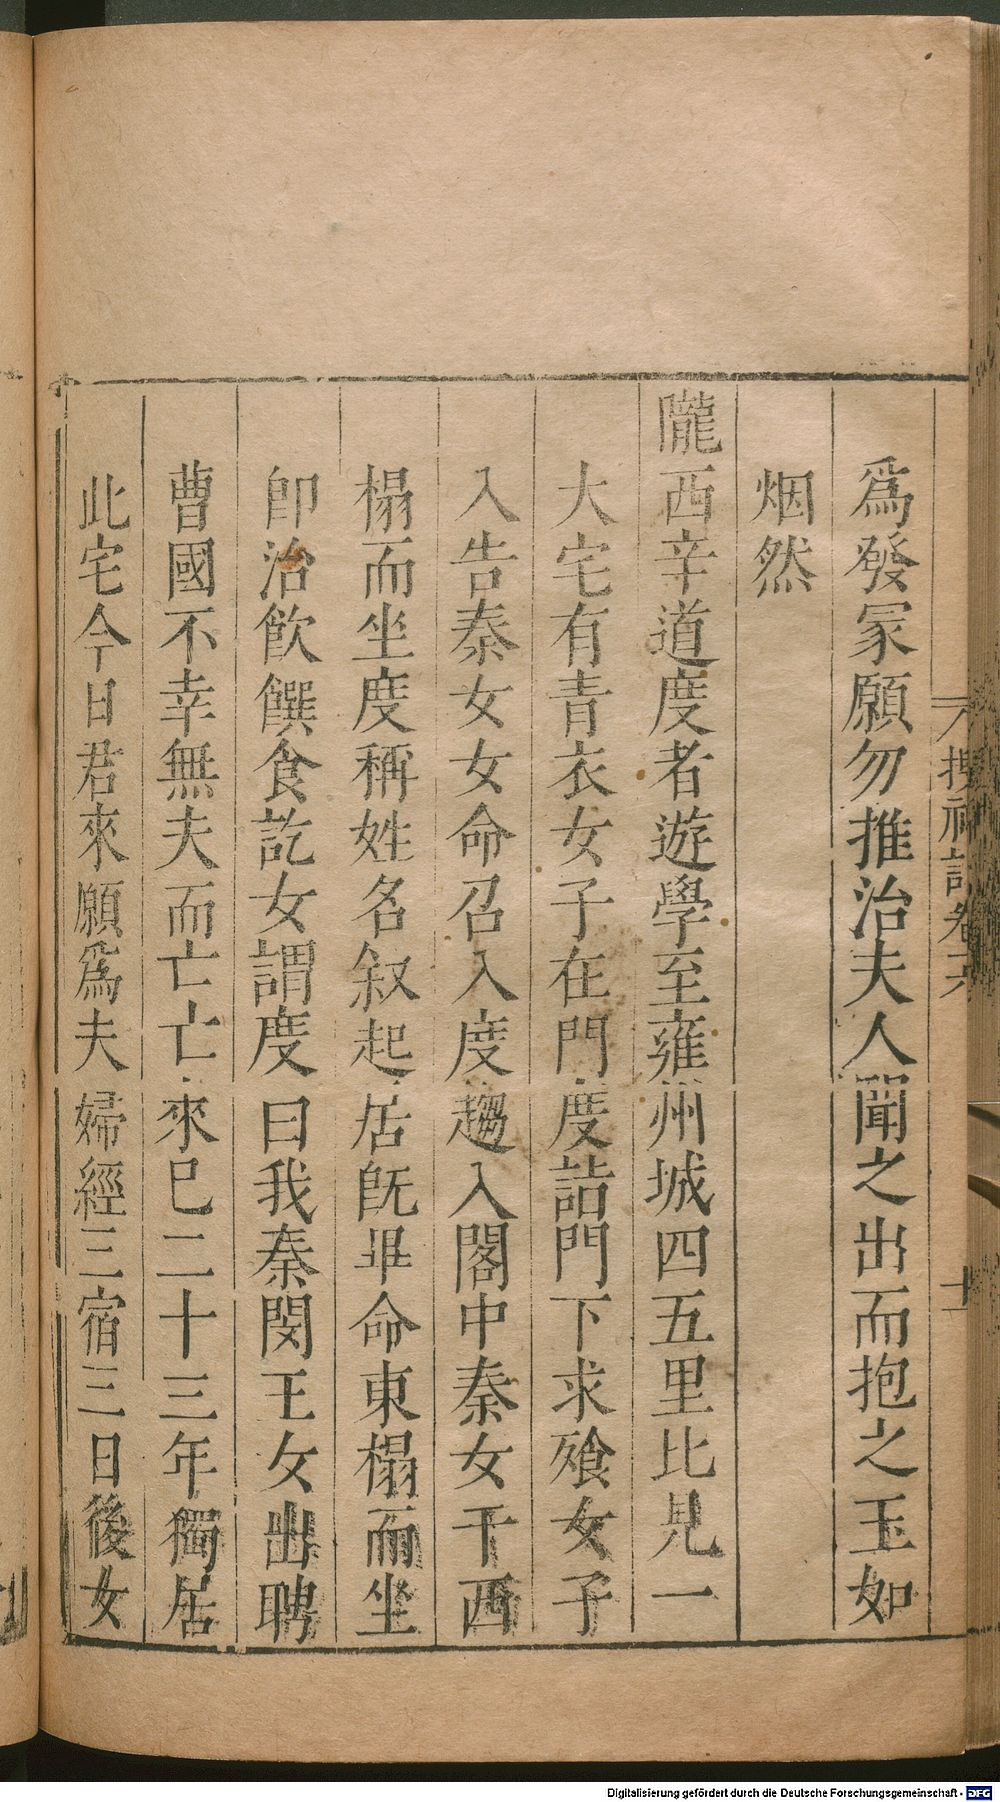 搜神記卷十六 十一
爲發冢願勿推治夫人聞之出而抱之玉如
烟然
隴西辛道度者遊學至雍州城四五里比見一
大宅有青衣女子在門度詣門下求飱女子
入告秦女女命召入度趨入閣中秦女于西
榻而坐度稱姓名叙起居旣畢命東榻而坐
卽治飮饌食訖女謂度曰我秦閔王女出聘
曹國不幸無夫而亡亡來已二十三年獨居
此宅今日君來願爲夫婦經三宿三日後女
Digitalisierung gefördert durch die Deutsche Forschungsgemeinschaft - DFG